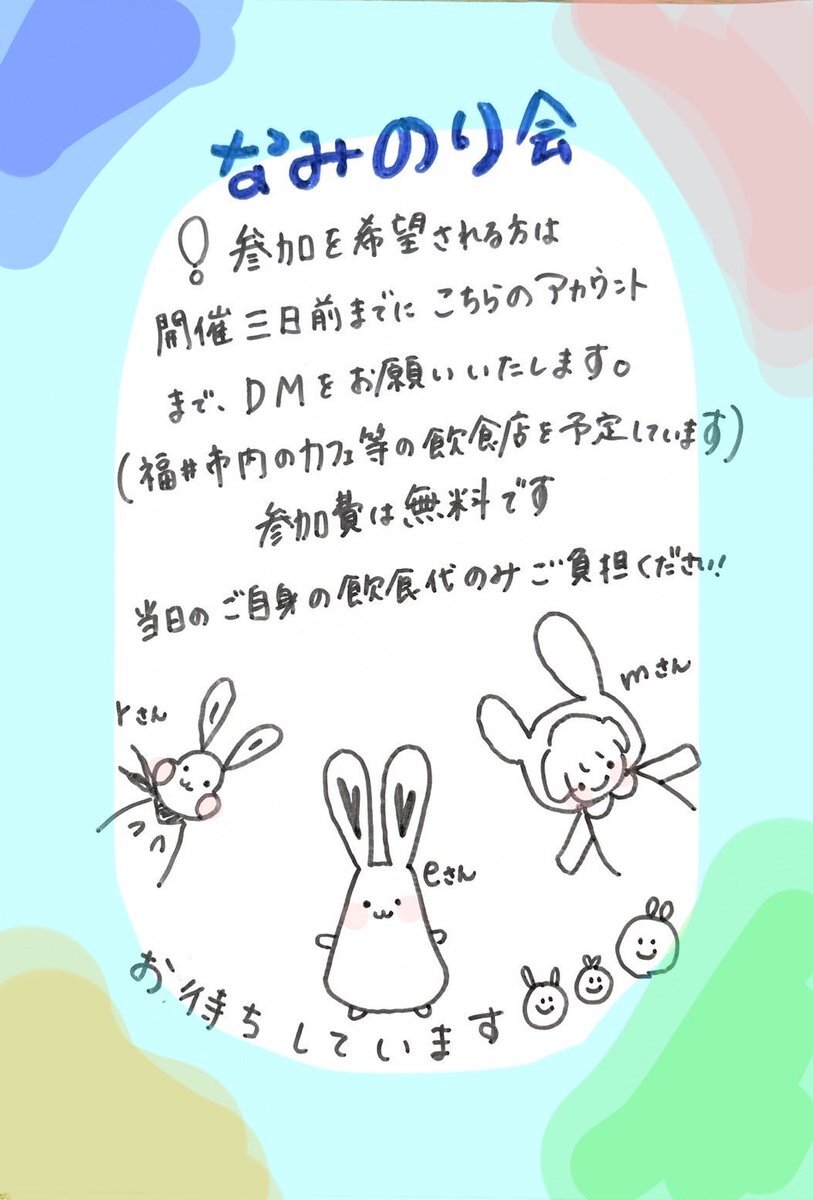 なみのり会
! 参加を希望される方は
開催三日前までにこちらのアカウント
まで、DMをお願いいたします。
(福井市内のカフェ等の飲食店を予定しています)
参加費は無料です
当日のご自身の飲食代のみご負担ください!
mさん
rさん
eさん
お待ちしています